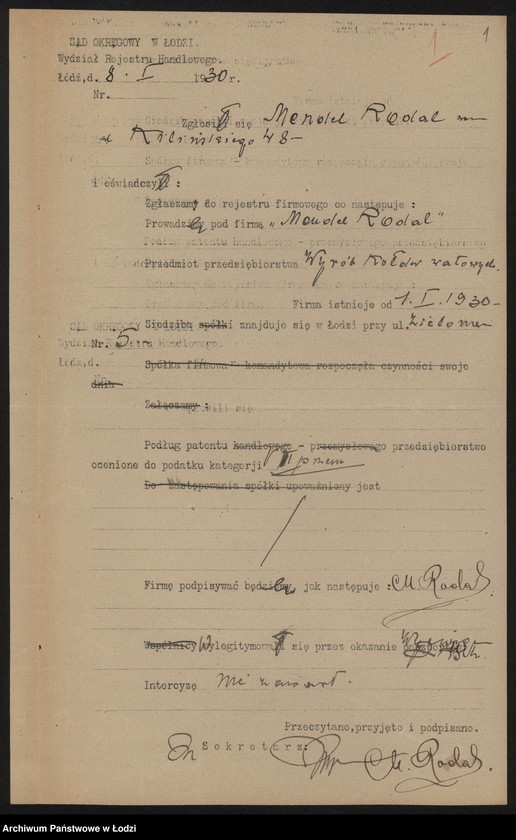 1 1
SĄD OKRĘGOWY W ŁODZI.
Wydział Rejestru Handlowego.
Łódź, d. 8. I 1930 r.
Nr.
Zgłosił się Mendel Rodal
Kilińskiego 48-
i oświadczył :
Zgłaszam do rejestru firmowego co następuje :
Prowadzę pod firmą „Mendel Rodal"
Przedmiot przedsiębiorstwa Wyrób kołder watowych.
Firma istnieje od 1. I. 1930-
Siedziba spółki znajduje się w Łodzi przy ul.
Nr. 5
Spółka firmowa - komandytowa rozpoczęła czynności swoje
dnia
Załączamy :
Podług patentu handlowego - przemysłowego przedsiębiorstwo
ocenione do podatku kategorji
Do zastępowania spółki upoważniony jest
Firmę podpisywać będzie jak następuje : M. Rodal.
Wspólnicy Wylegitymował się przez okazanie
Intercyzę nie zawarł.
Przeczytano, przyjęto i podpisano.
Sekretarz: M. Rodal.
Archiwum Państwowe w Łodzi